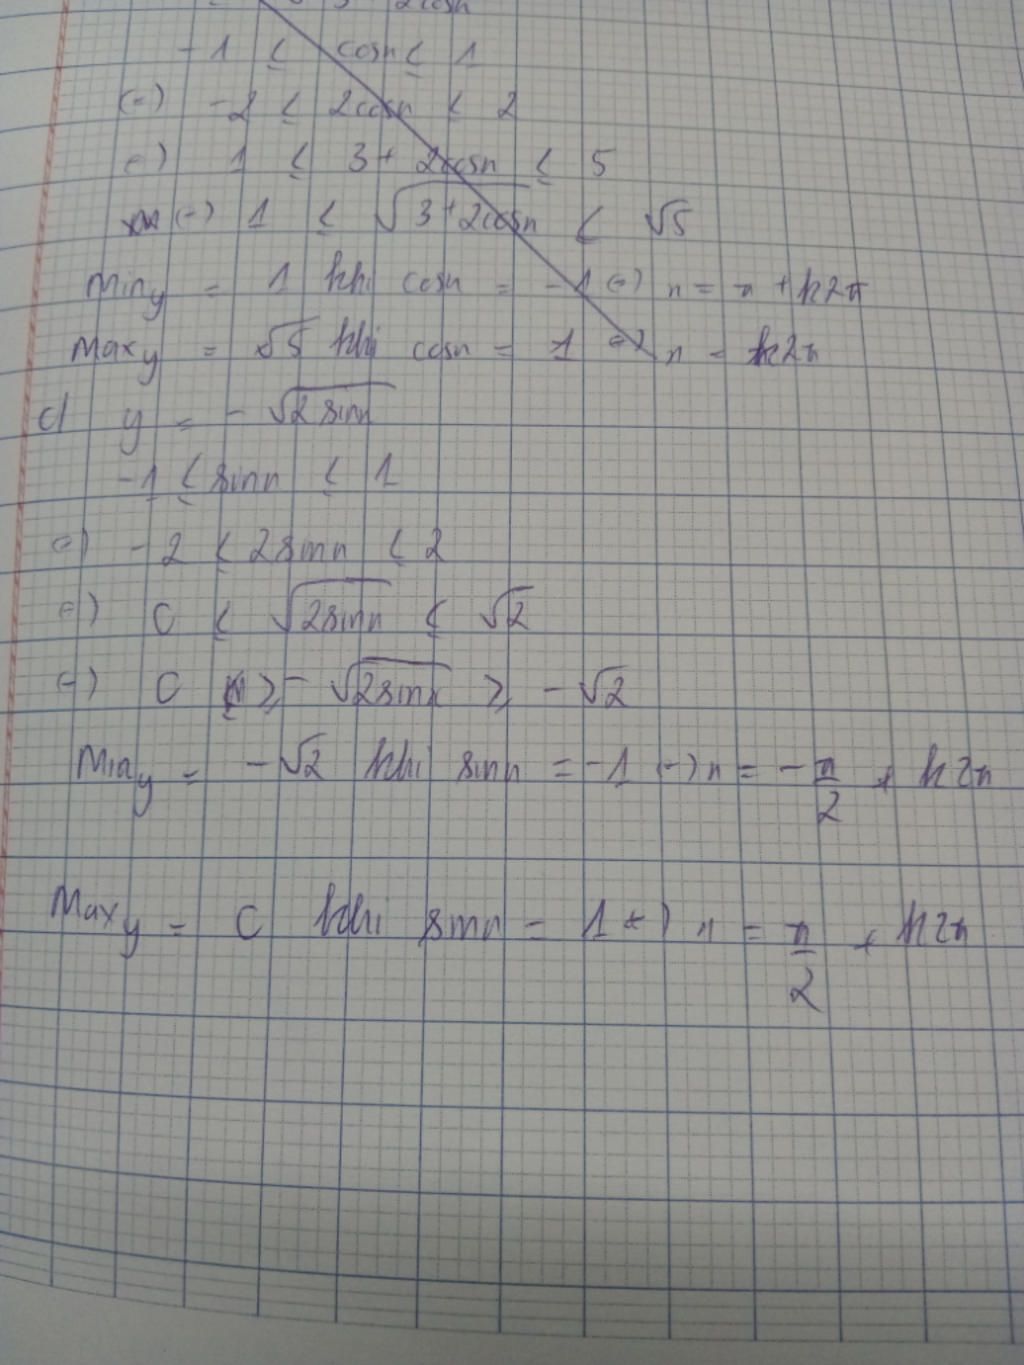 √3 + 2cosn
-1 ≤ cosn ≤ 1
(=) -2 ≤ 2cosn ≤ 2
(=) 1 ≤ 3 + 2cosn ≤ 5
(=) 1 ≤ √3+2cosn ≤ √5
Min y = 1 khi cosn = -1 (=) n = π + k2π
Max y = √5 khi cosn = 1 (=) n = k2π
c) y = - √2 sinn
-1 ≤ sinn ≤ 1
(=) -2 ≤ 2sinn ≤ 2
(=) 0 ≤ √2sinn ≤ √2
(=) 0 ≥ - √2sinn ≥ - √2
Min y = - √2 khi sinn = -1 (=) n = - π/2 + k2π
Max y = 0 khi sinn = 1 (=) n = π/2 + k2π